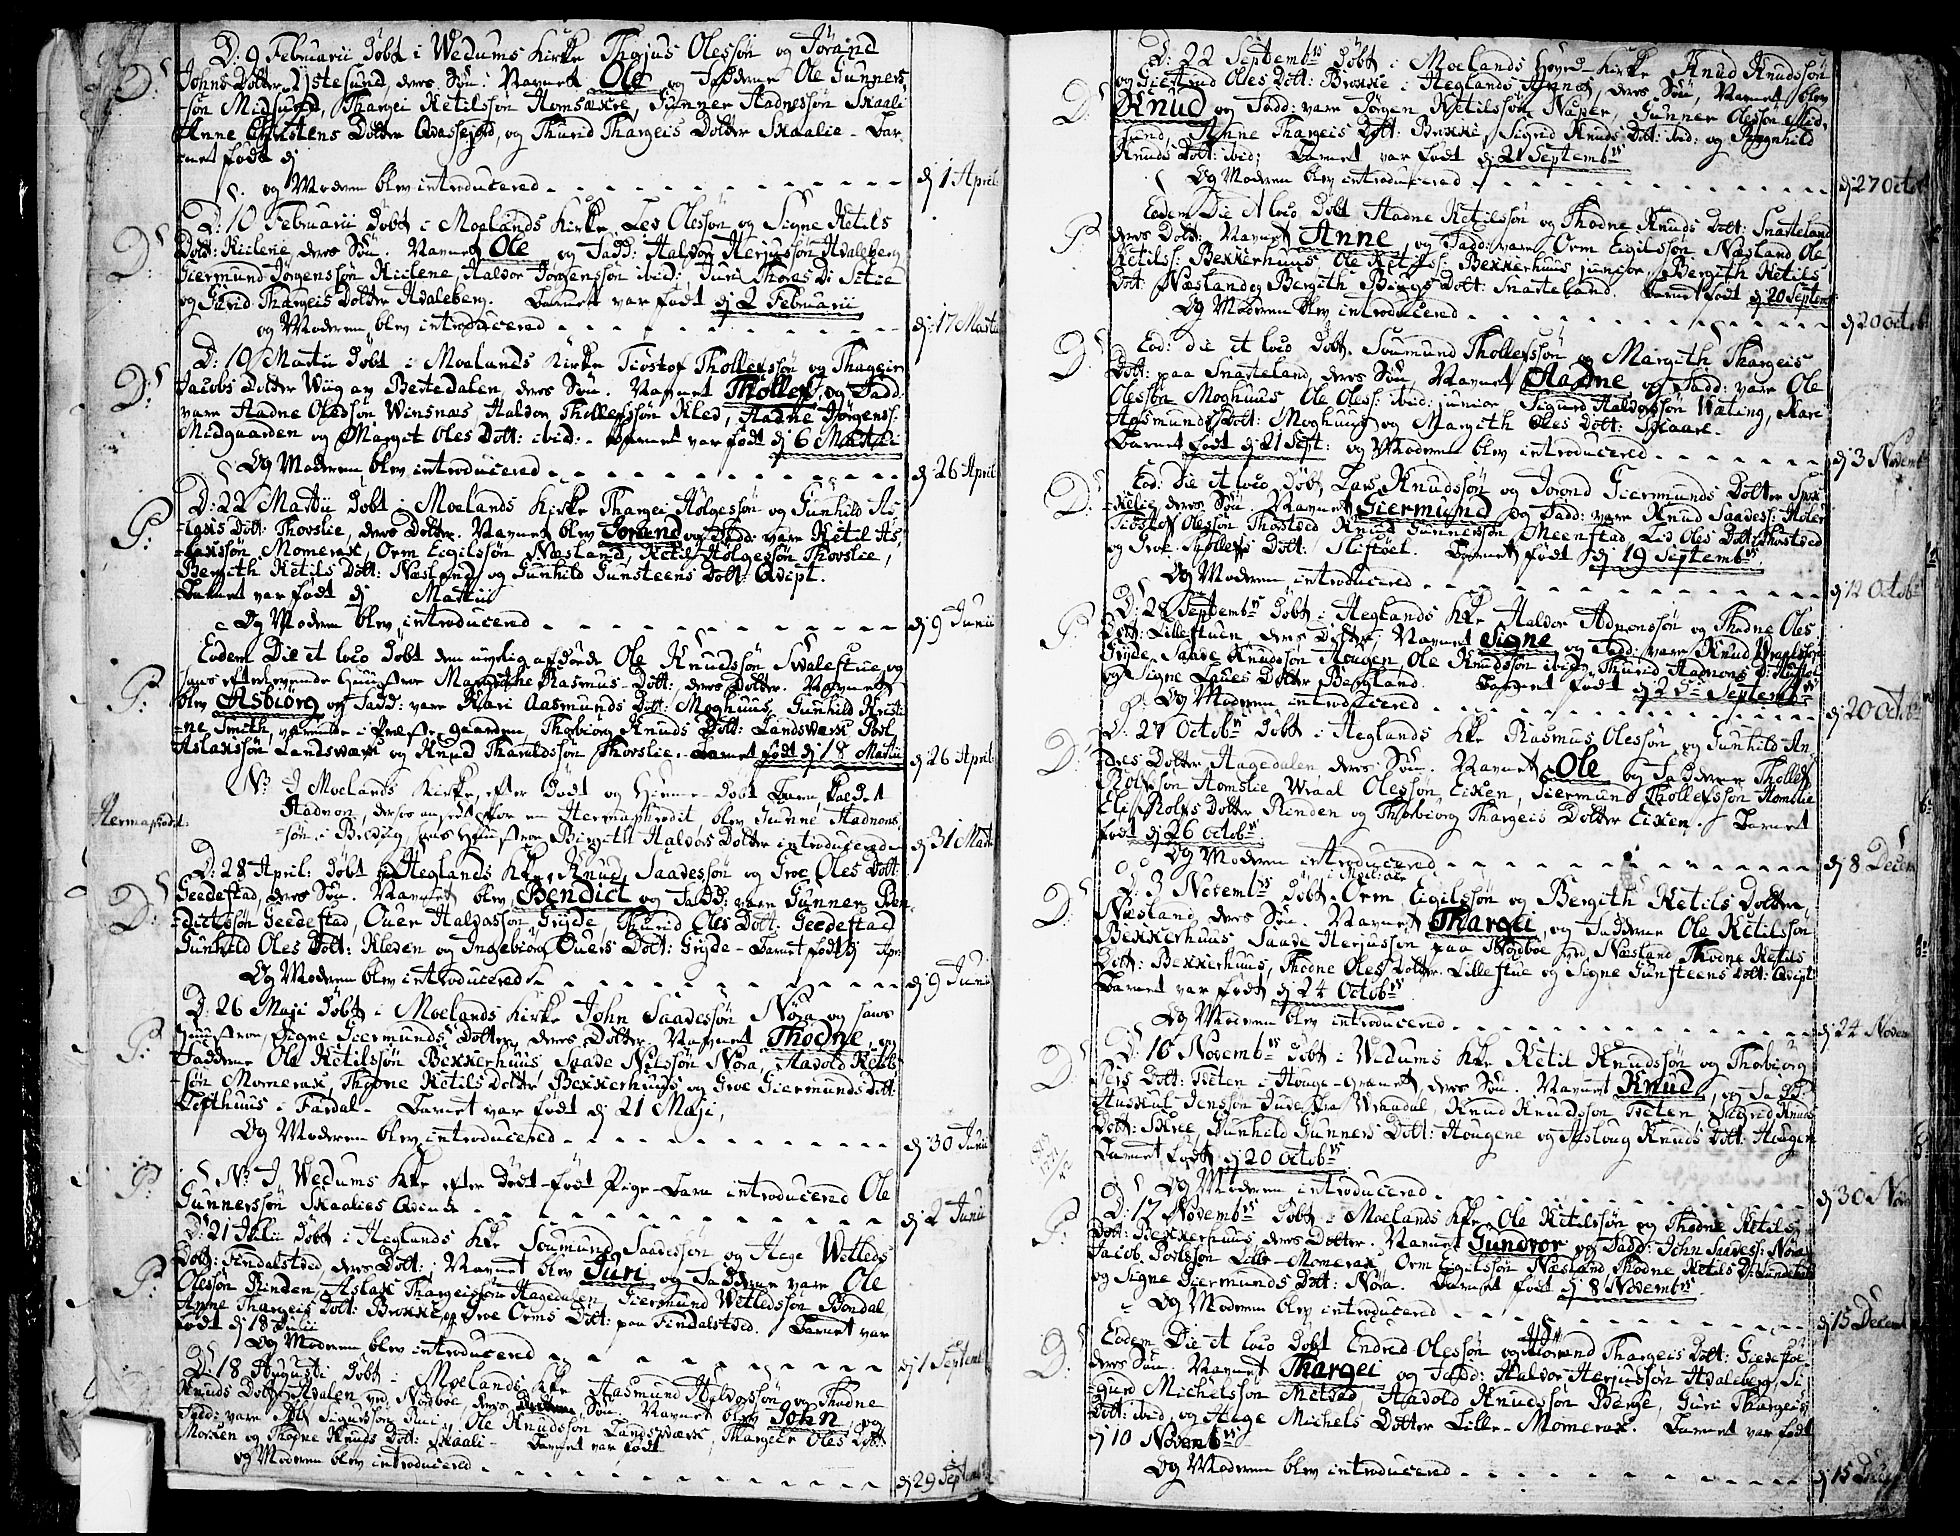 D. 9 Februarii Døbt i Wedums Kirke Thorjus Olessøn og Jørand
Johns Dotter Ystesund deres Søn. Navnet Ole og Fadderne Ole Gunners
søn Midsund, Thargei Ketilssøn Homsække, Gunner Aadnessøn Skaali
Anne Christens Dotter, og Thurid Thargeis Dotter Skaalie - Bar
net født dj
og Moderen blev introducered - dj 1 April:
D: 10 Februarii Døbt i Moelands Kirke Lev Olessøn og Signe Ketils
Dott: Kiilene, deres Søn. Navnet Ole og Fadd: Haldor Herjussøn Hvaleberg
Giermund Jørgenssøn Kiilene, Haldor Jørgenssøn ibid: Turi Thores D:
og Gurid Thargeis Dotter Hvaleberg. Barnet var født dj 2 Februarii
og Moderen blev introducered - dj 17 Martii
D: 19 Martii Døbt i Moelands Kirke Tiostof Thollefssøn og Thargier
Jacobs Dotter Wiig av Bestedalen, deres Søn. Navnet Thollef, og Fadd:
vare Aadne Olessøn Winsnæs, Haldor Thollefssøn Klev, Aadne Jørgenss:
Midgaarden og Margit Oles Dott: ibid: - Barnet var født dj 6 Martii
Og Moderen blev introducered - dj 26 April
D: 22 Martii Døbt i Moelands Kirke Thargei Holgessøn og Gunhild As
laxis Dott: Thovslie, deres Dotter. Navnet blev Jorand og Fadd: vare Ketil As
laxsøn Momerak, Orm Eigilssøn Næsland, Ketil Holgessøn Thovslie,
Bergith Ketils Dott: Næsland og Gunhild Gunsteens Dott: Qvipt.
Barnet var født dj Martii
Og Modern blev introducered - dj 9 Junii
Eodem Die et loco Døbt den nylig afdøde Ole Knudssøn Svalestue og
hans efterlevende Huustroe Margithe Rasmus-Dott:, deres Dotter. Navnet
blev Asbiørg og Fadd: vare Kari Aasmunds Dott: Moghuus, Gunhild Kristi
ne Smith, værende i Præstegaarden, Thorbiørg Knuds Dott: Landsværk Povl
Aslakssøn Landsværk og Knud Tharaldssøn Thovslie. - Barnet født dj 18 Martii - dj 26 April:
Nb. I Moelands Kirke, efter Dødt og Hieme-døbt Barn, kaldet
Hermaphrodit:
Aadnon, dersom anseet for en Hermaphrodit, blev Gunne Aadnons
søn i Berdvig hans Huustroe Birgith Haldors Dotter introducered - dj 31 Martii
D: 28 April: Døbt i Heglands Kke, Knud Saavessøn og Groe Oles Dott:
Geedestad, deres Søn. Navnet blev Bendict og Fadd: vare Gunner Ben
dictssøn Geedestad, Ouer Haldorssøn Gryde, Thurid Oles Dott: Geedestad
Gunhild Oles Dott: Kleven og Ingebiørg Ouers Dott: Gryde - Barnet født dj Apr:
Og Moderen blev introducered - dj 9 Junii
D. 26 Maji Døbt i Moelands Kirke John Saavessøn Nøra og hans
Huustroe Signe Giermunds Dotter, deres Dotter. Navnet Thodne, og
Fadderne Ole Ketilssøn Bekkerhuus Saave Nilssøn Nøra, Aavold Ketils
søn Momerak, Thodne Ketils Dotter Bekkerhuus og Groe Giermunds Dott:
Lofthuus i Fardal - Barnet var født dj 21 Maji,
Og Moderen blev introducered - dj 30 Junii
Nb. I Wedums Kke efter Dødt-født Pige-Barn introducered Ole
Gunnerssøn Skaalies Qvinde - dj 2 Junii
D. 21 Julii Døbt i Heglands Kke Soumund Saavessøn og Hage Wetleds
Dott: Findalstved, deres Dott: Navnet blev Juri og Fadderne vare Ole
Olessøn Rinden, Aslak Thargeissøn Hagedalen Giermund Wetledssøn Bondal
Anne Thargeis Dott: Brokke og Groe Orms Dott: paa Findalstved. Barnet var
født dj 18 Julii
Og Moderen blev introducered - dj 1 Septemb
D. 18 Augusti Døbt i Moelands Kke Aasmund Haldorssøn og Thodne
Knuds Dott: Hvalen ved Nordboe, deres Søn. Navnet blev John, og
Fadd: vare Sigurssøn Ole Knudssøn Landsværk, Thargier Oles Dott:
Morken og Thodne Knuds Dott: Skaali - Barnet var født
og Moderen blev introducered - dj 29 Septemb
D: 22 Septembris Døbt i Moelands Hoved-Kirke Knud Knudssøn
og Giertrud Oles Dott: Brokke i Heglands Annex, deres Søn, Navnet blev
Knud og Fadd: vare Jørgen Ketilssøn Naper, Gunner Olessøn Mid-
sund, Anne Thargeis Dott: Brokke, Sigrid Knuds Dott: ibid: og Ragnhild
Knuds Dott: ibid; Barnet var født dj 21 Septembris
Og Moderen blev introducered - dj 27 Octob
Eodem Die et loco Døbt Aadne Ketilssøn og Thodne Knuds Dott: Snarteland
deres Dott: Navnet Anne, og Fadd: vare Orm Eigilssøn Næsland Ole
Ketilss: Bekkerhuus Ole Ketilss: Bekkerhuus junior, Bergith Ketils
Dott: Næsland og Bergith Biugs Dott: Snarteland. Barnet født dj 20 Septemb
Og Moderen blev introducered - dj 20 Octob
Eod: die et loco Døbt Soumund Thollefssøn og Margith Thargeis
Dott: paa Snarteland, deres Søn, Navnet Aadne og Fadd: vare Ole
Olessøn Moghuus Ole Oless: ibid: junior Sigurd Haldorssøn Wating, Kari
Aasmunds Dott: Moghuus og Margith Oles Dott: Skaare.
Barnet født dj 21 Sept: og Moderen blev introducered - dj 3 Novemb
Eod: Die et loco Døbt Lars Knudssøn og Jorond Giermunds Dotter Spok
kelie, deres Søn Navnet Giermund og Fadd: vare Knud Saavess:
Tiostof Olessøn Thostved Knud Gunnerssøn Meenstad, Liv Oles Dott: Thostved
og Groe Thollefs Dott: Sliftøel. Barnet født dj 19 Septembris
Og Moderen introducered - dj 12 Octob
D. 28 Septembris Døbt i Heglands Kke Haldor Adnenssøn og Thodne Oles
Dott: Lillestuen, deres Dotter, Navnet Signe og Fadd: vare Knud
Gryde, Saave Knudssøn Hougen Ole Knudssøn ibid: Thurid Aadnons D:
og Signe Laues Dotter Bergland. Barnet født dj 25 Septembris
Og Moderen introducered - dj 20 Octob
D. 27 Octobr: Døbt i Heglands Kke Rasmus Olessøn og Gunhild An
dres Dotter Hagedalen deres Søn. Navnet Ole og Fadderne Thollef
Rolfssøn Homslie Wraal Olessøn Eiken, Giermund Thollefssøn Homslie
Eli Rolfs Dotter Rinden og Thorbiørg Thargeis Dotter Eiken. Barnet
født dj 26 Octobris
Og Moderen introducered - dj 8 Decem
D: 3 Novembris Døbt Orm Eigilssøn og Bergith Ketils Dotter
Næsland, deres Søn. Navnet Thargei, og Fadderne Ole Ketilssøn
Bekkerhuus Saave Herjussøn paa Nordboe ved Næsland Thodne Ketils
Dott: Bekkerhuus, Thodne Oles Dotter Lillestue og Signe Gunsteens Dott: Qvipt:
Barnet var født dj 24 Octobris
Og Moderen blev introducered - dj 24 Novem
D: 16 Novembris Døbt i Wedums Kke Ketil Knudssøn og Thorbiørg
Pers Dott: Tveten i Houge-Grænd, deres Søn Navnet Knud, og Fadd:
Huskul Jenssøn Jude fra Wraadal, Knud Knudssøn Tveten, Sigrid Knuds
Dott: Skree, Gunhild Gunners Dott: Hougene og Aaslaug Knuds Dott: Hougen
Barnet født dj 20 Octobris
Og Moderen blev introducered - dj 30 Nov
D: 17 Novembris Døbt i Moelands Kke Ole Ketilssøn og Thodne Ketils
Dott: Bekkerhuus, deres Dotter. Navnet Gundvor og Fadd: John Saavess: Nøra
Jacob Povlssøn Lille-Momerak, Orm Eigilssøn Næsland Thodne Ketils D:
og Signe Giermunds Dott: Nøra. Barnet født dj 8 Novembris
Og Moderen blev introducered - dj 15 Decem
Eodem Die et loco Døbt Endred Olessøn og Jorand Thargeis Dott:
deres Søn. Navnet Thargei og Fadd: Haldor Herjussøn Hvaleberg, Si
gurd Michelssøn Metved, Aavold Knudssøn Berge, Guri Thargeis
Dott: ibid, og Hage Michels Dotter Lille-Momerak. Barnet var født
dj 10 Novembris
Og Moderen blev introducered - dj 15 Dec